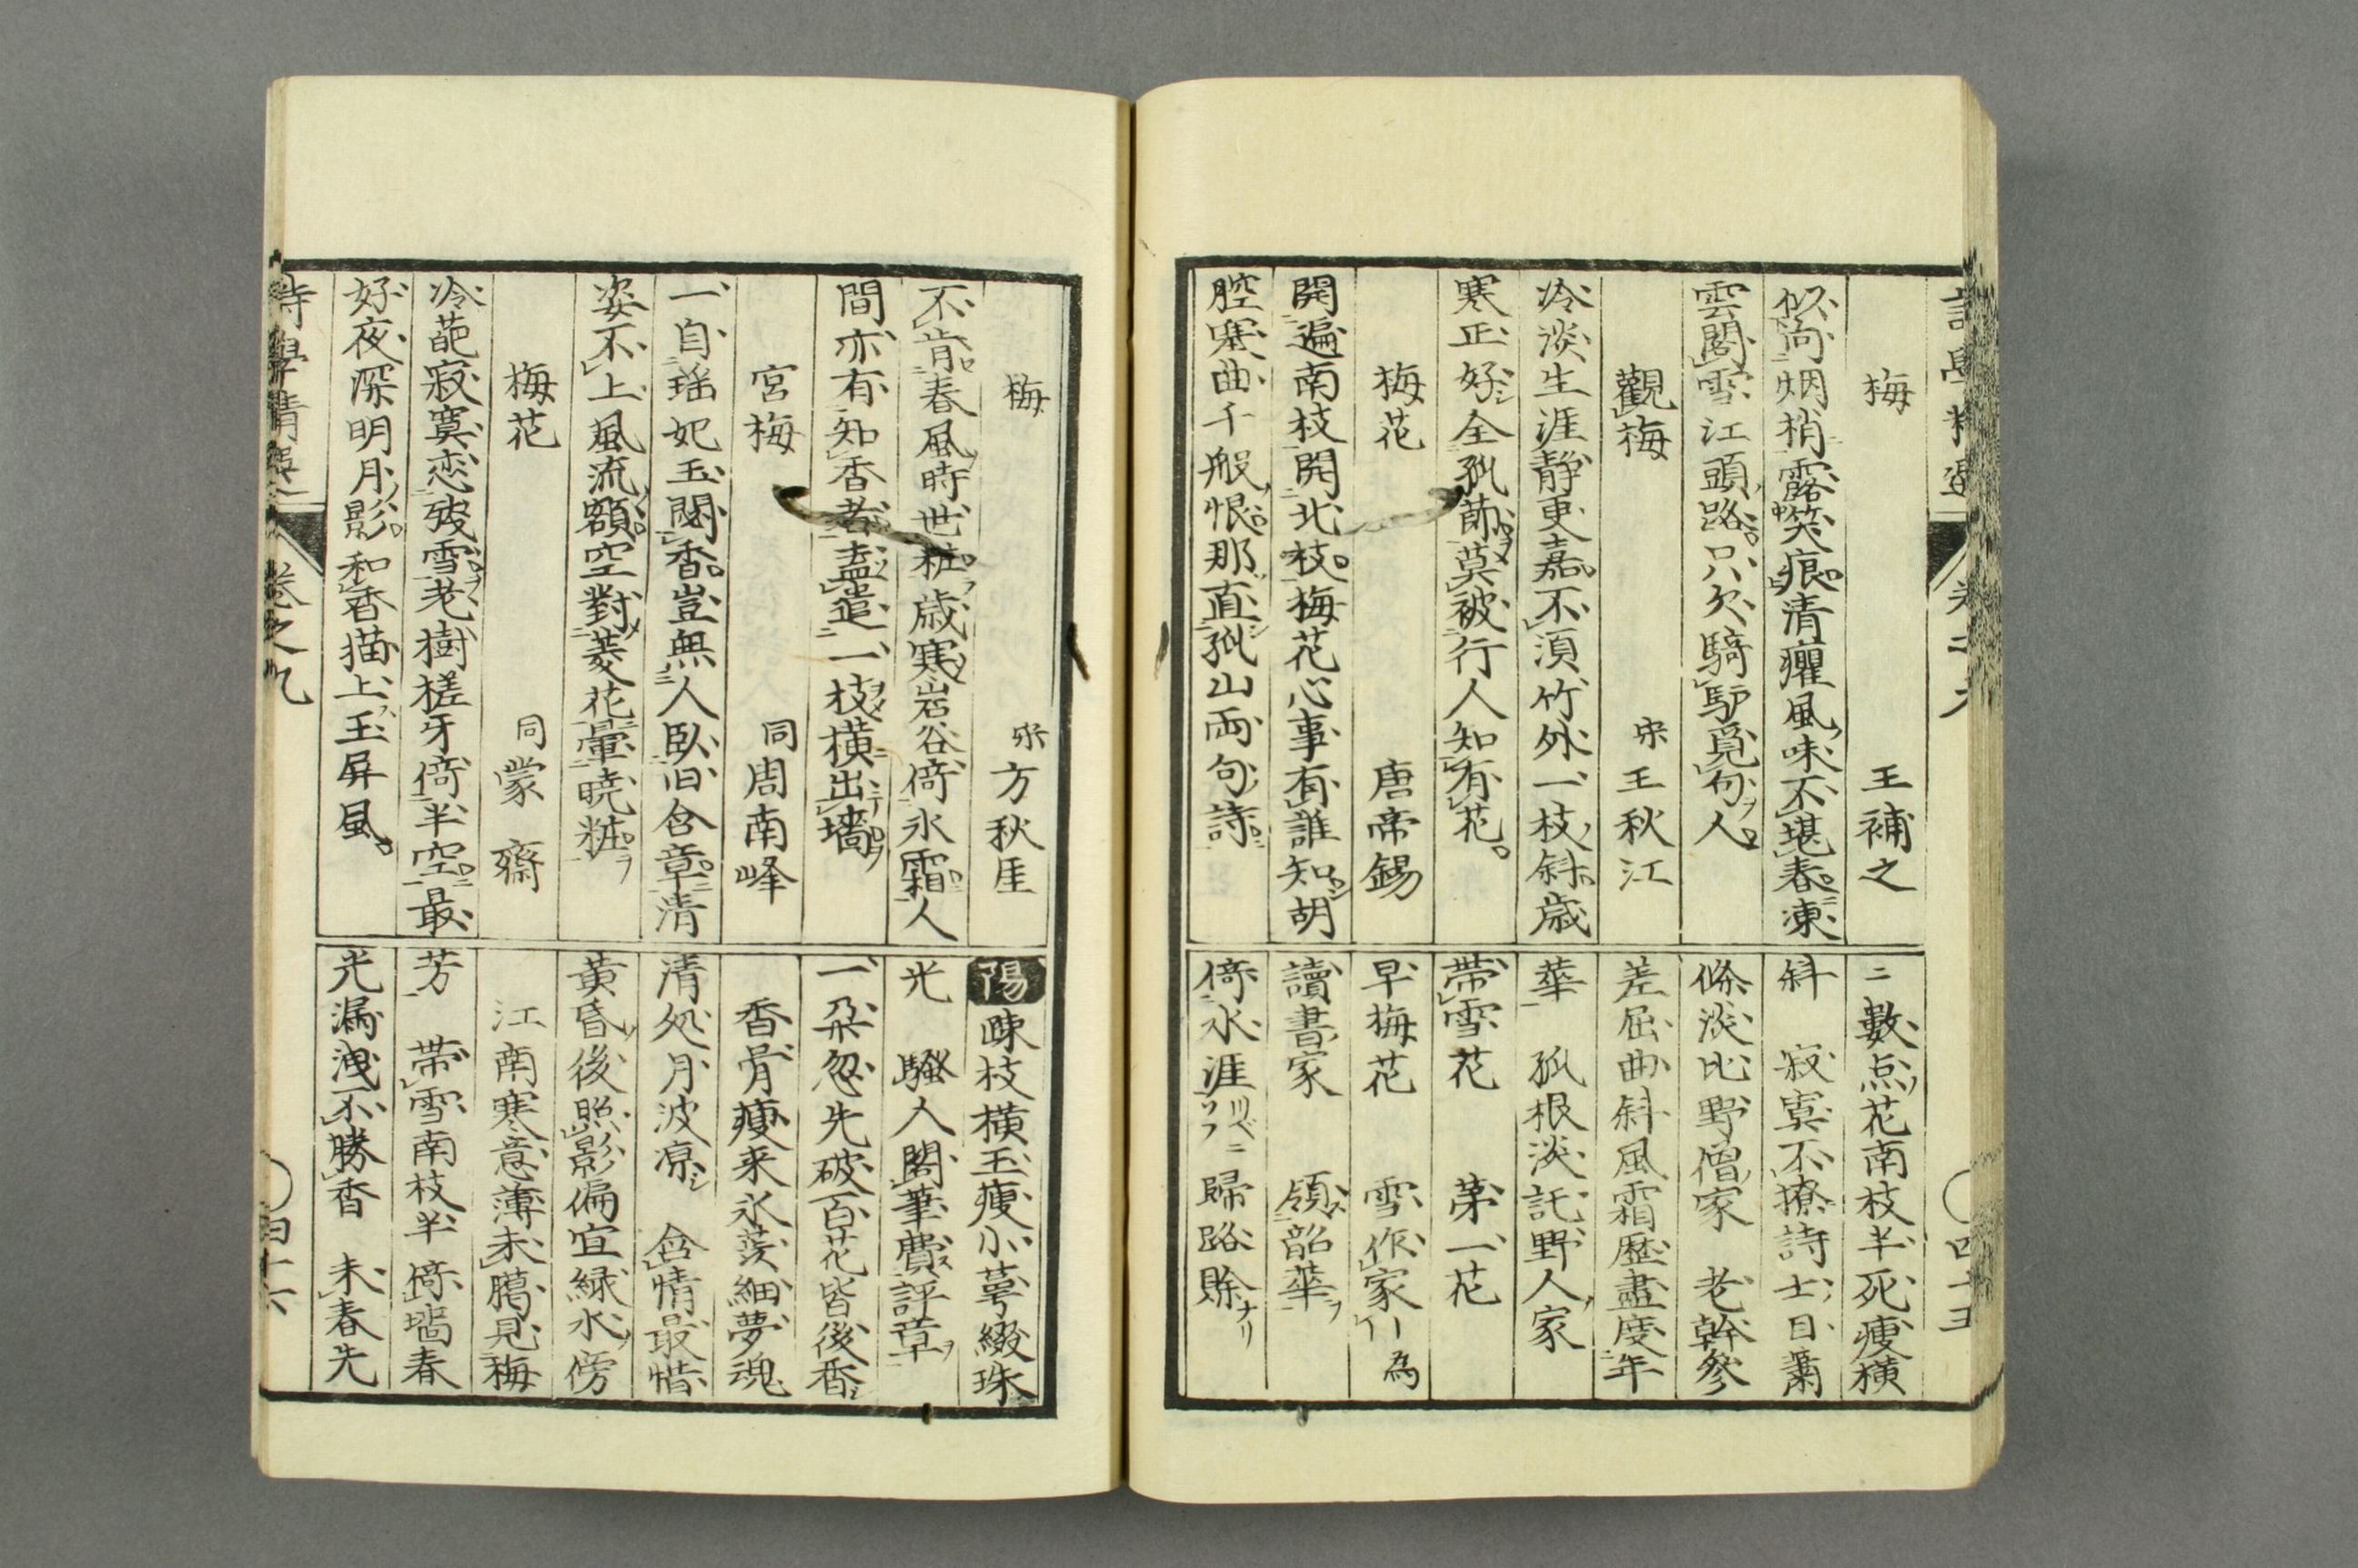 梅　王補之
似向烟梢露笑痕清癯風味不堪春凍
雲閣雪江頭路只欠騎馿覓句人
觀梅　宋王秋江
冷淡生涯静更嘉不須竹外一枝斜歳
寒正好全孤節莫被行人知有花
梅花　唐帝錫
開遍南枝開北枝梅花心事有誰知胡
腔塞曲千般恨那直孤山両句詩
数点花南枝半死痩横
斜　寂寞不撩詩士日蕭
條淡比野僧家　老幹參
差屈曲斜風霜歴盡度年
華　孤根淡託野人家
帯雪花　第一花
早梅花　雪作家
讀書家　領韶華
倚水涯　歸路賒
梅　宋方秋厓
不肯春風時世粧歳寒岩谷倚氷霜人
間亦有知香者盡遣一枝横出墻
宮梅　同周南峰
一自瑶妃玉閟香豈無人臥旧含章清
姿不上風流額空對菱花暈暁粧
梅花　同蒙齋
冷葩寂寞恋残雪老樹槎牙倚半空最
好夜深明月影和香描上玉屏風
陽　疎枝横玉痩小萼綴珠
光　騒人閣筆費評章
一朶忽先破百花皆後香
香骨痩来氷蕊細夢魂
清処月波凉　含情最惜
黄昏後照影偏宜緑水傍
江南寒意薄未臈見梅
芳　帯雪南枝半　倚墻春
光漏洩不勝香　未春先
卷之九